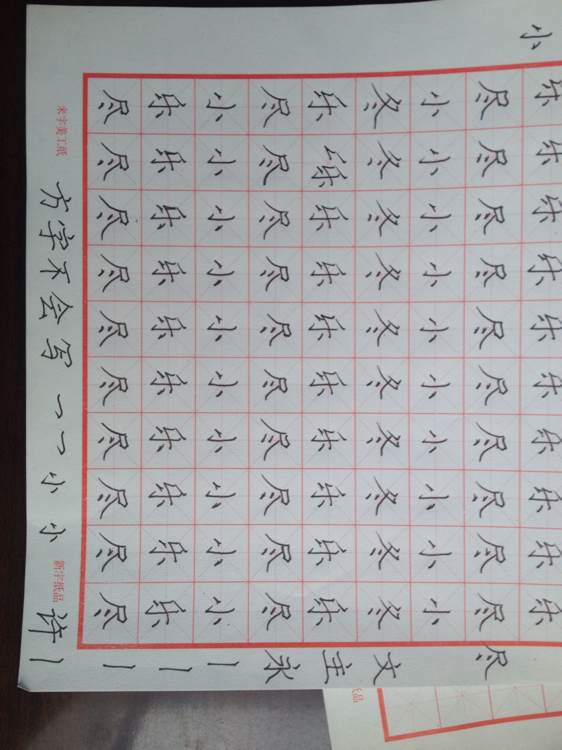 小
乐乐乐乐乐乐乐乐乐乐
尽尽尽尽尽尽尽尽尽尽 尽
小小小小小小小小小小
冬冬冬冬冬冬冬冬冬冬 文
乐乐乐乐乐乐乐乐乐乐 主
尽尽尽尽尽尽尽尽尽尽 永
小小小小小小小小小小 丨
乐乐乐乐乐乐乐乐乐乐 丨
尽尽尽尽尽尽尽尽尽尽 丨
米字美工纸
方字不会写 小 小 许 丨
纸品